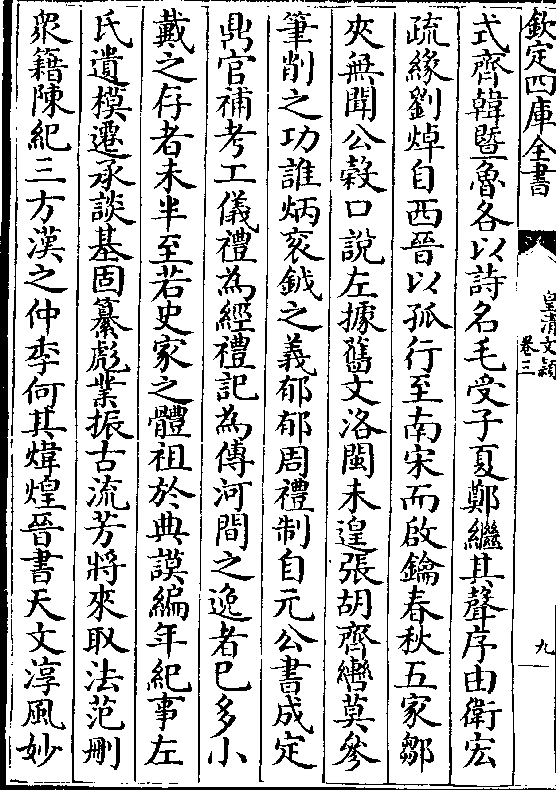 欽定四庫全書
皇清文穎
卷三
九
式齊韓暨魯各以詩名毛受子夏鄭繼其聲序由衛宏
疏緣劉焯自西晉以孤行至南宋而啟鑰春秋五家鄒
夾無聞公穀口說左據舊文洛閩未遑張胡齊轡莫參
筆削之功誰炳袞鉞之義郁郁周禮制自元公書成定
鼎官補考工儀禮為經禮記為傳河間之逸者已多小
戴之存者未半至若史家之體祖於典謨編年紀事左
氏遺模遷承談基固纂彪業振古流芳將來取法范刪
衆籍陳紀三方漢之仲季何其煒煌晉書天文淳風妙